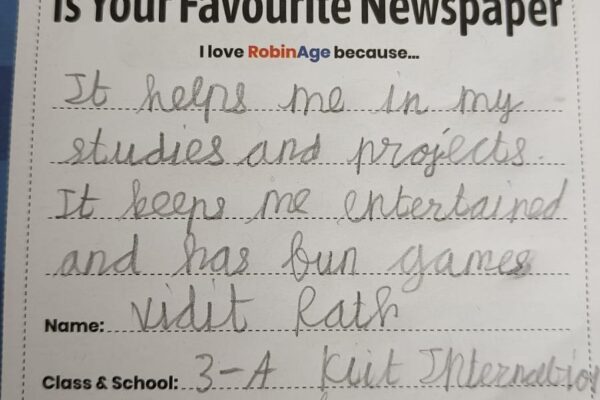 Is Your Favourite Newspaper
I love RobinAge because...
It helps me in my
studies and projects.
It keeps me entertained
and has fun games
Name: Vidit Rath
Class & School: 3-A Kiit Internation